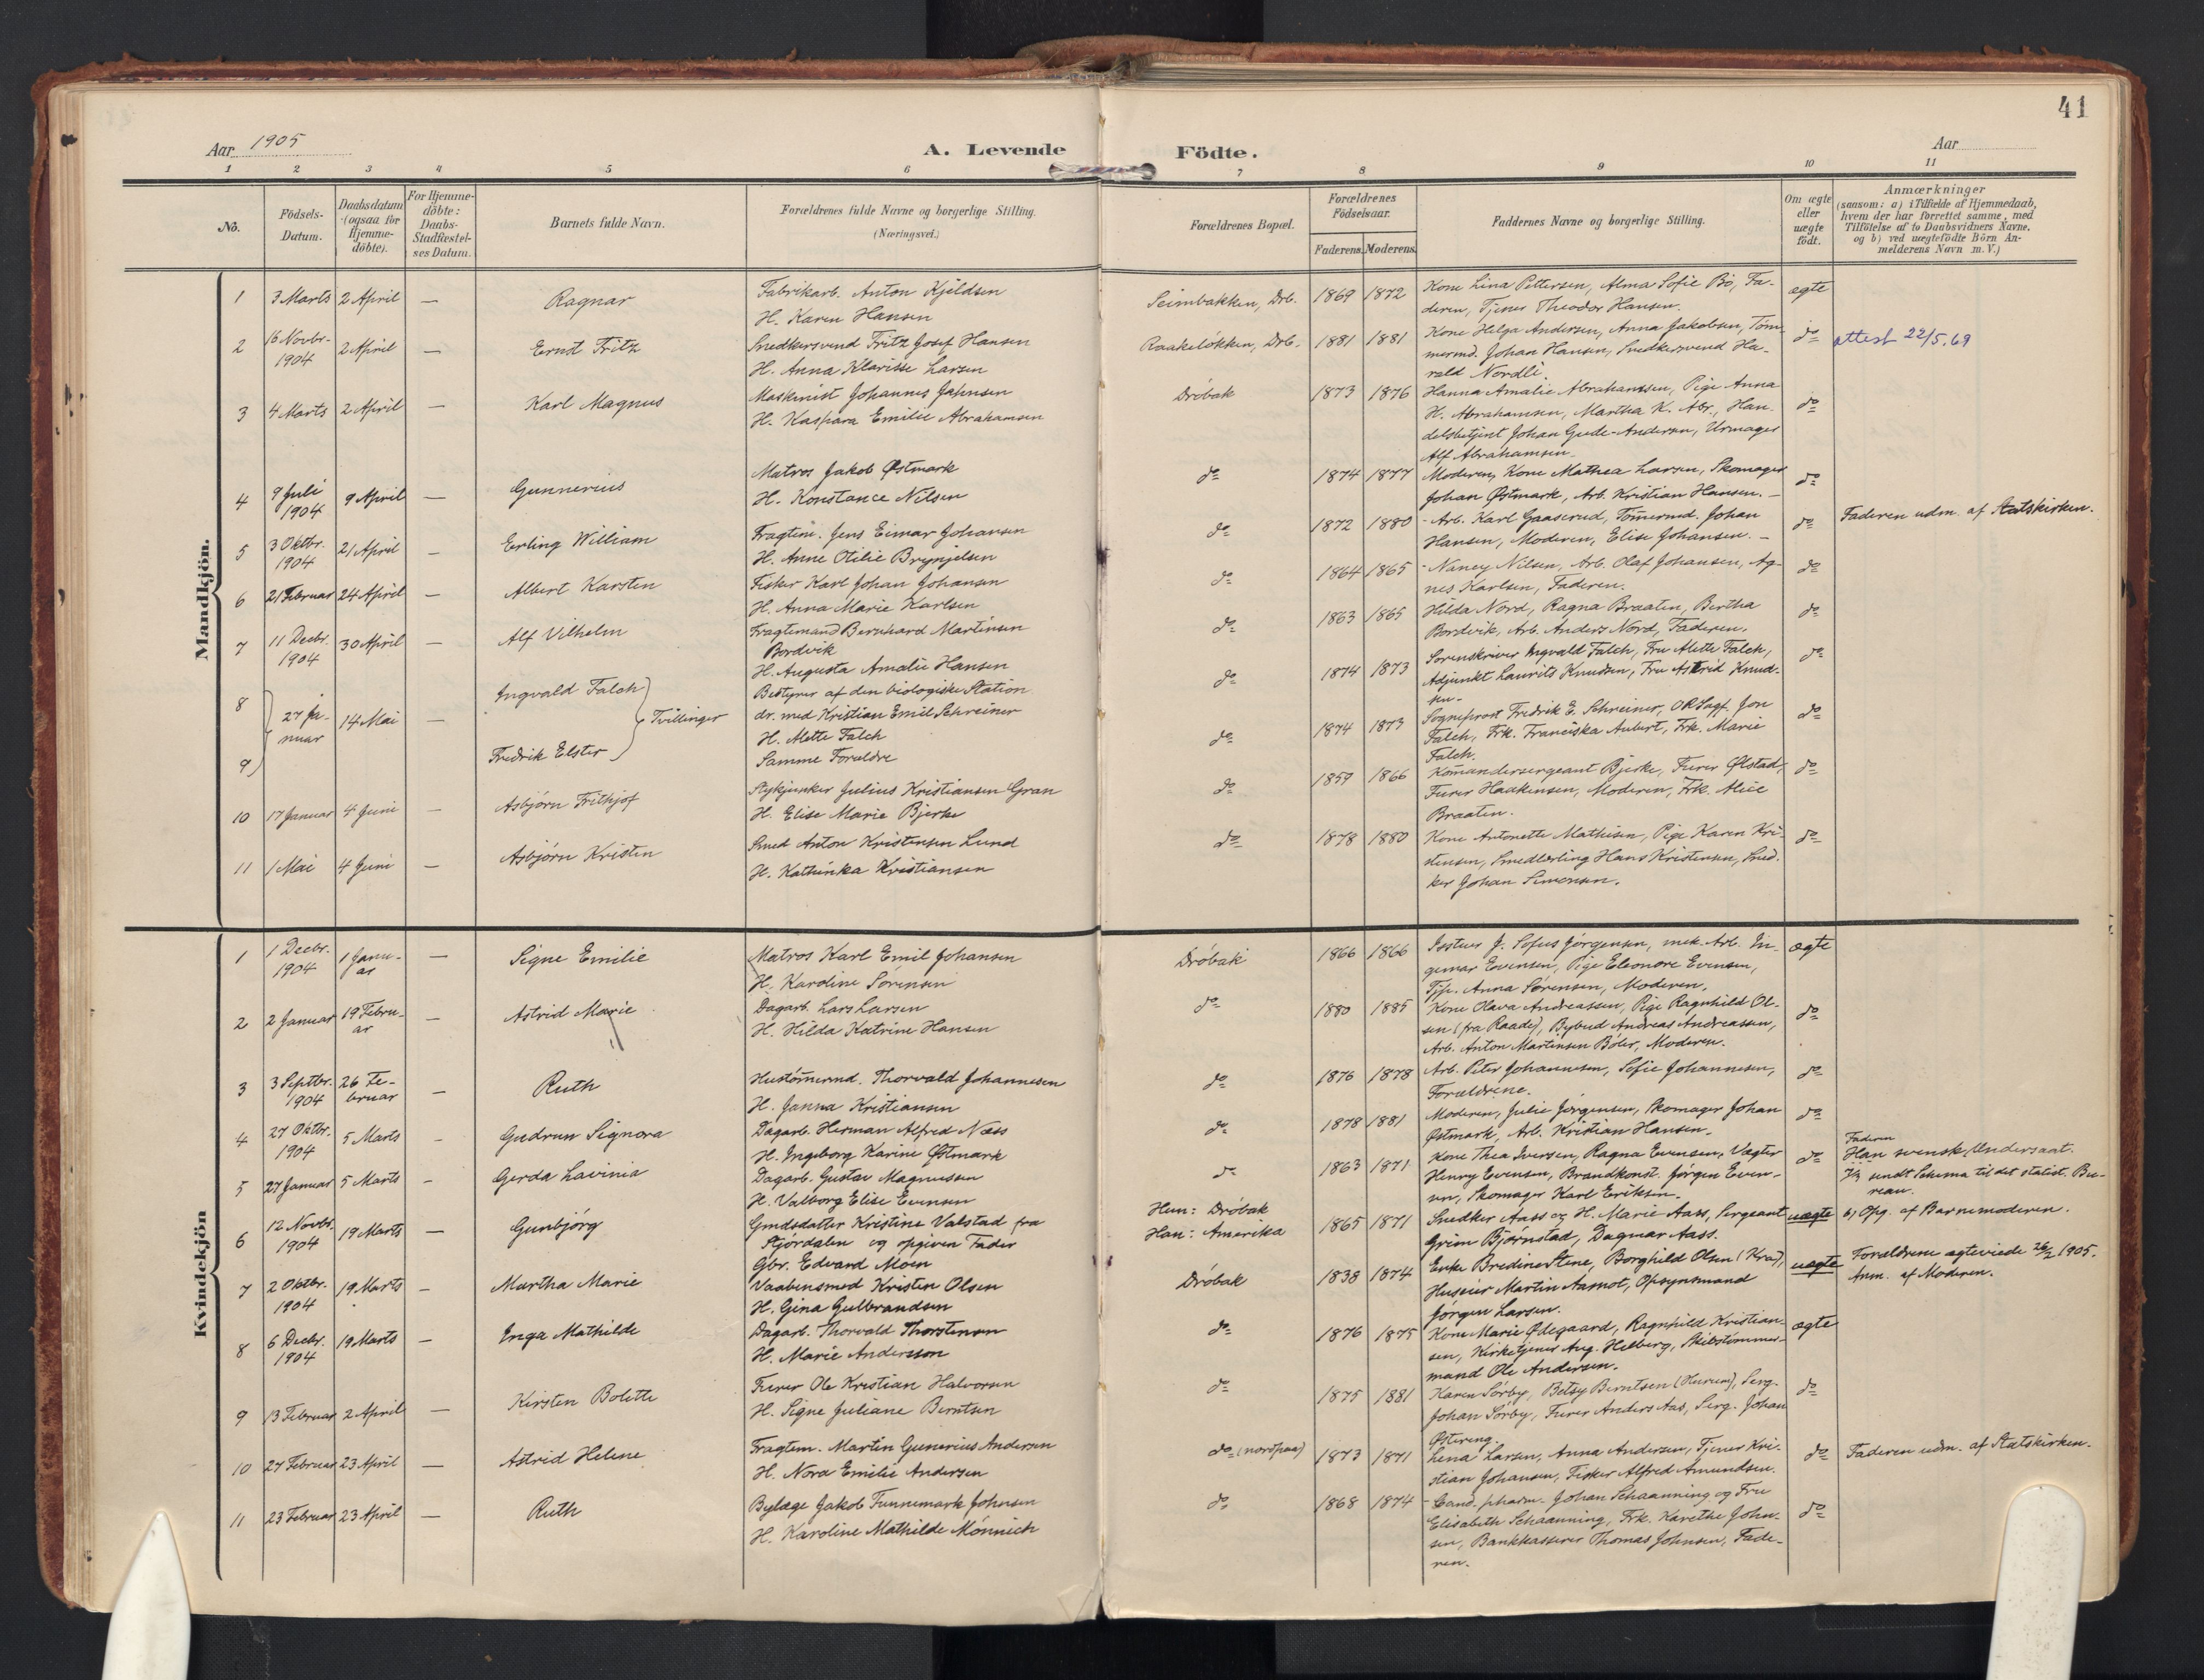 41
Aar 1905
A. Levende Födte.
Aar
1 2 3 4 5 6 7 8 9 10 11
No.
Födsels-Datum.
Daabsdatum (ogsaa for Hjemmedöbte).
For Hjemmedöbte: Daabs-Stadfæstelses Datum.
Barnets fulde Navn.
Forældrenes fulde Navne og borgerlige Stilling. (Næringsvei.)
Forældrenes Bopæl.
Forældrenes Födselsaar.
Faderens. Moderens.
Faddernes Navne og borgerlige Stilling.
Om ægte eller uægte födt.
Anmærkninger (saasom: a) i Tilfælde af Hjemmedaab, hvem der har forrettet samme, med Tilföielse af to Daabsvidners Navne, og b) ved uægtefödte Börn Anmelderens Navn m. V.)
Mandkjön.
1 3 Marts 2 April — Ragnar
Fabrikarb. Anton Kjeldsen
H. Karen Hansen
Seimbakken, Drb. 1869 1872
Kone Lina Pettersen, Alma Sofie Bö, Fa-
deren, Tjener Theodor Hansen.
ægte
2 16 Novbr. 1904 2 April — Ernst Fritz
Snedkersvend Fritz Josef Hansen
H. Anna Klarisse Larsen
Raakelökken, Drb. 1881 1881
Kone Helga Andersen, Anna Jakobsen, Töm-
mermd. Johan Hansen, Snedkersvend Ha-
rald Nordli.
do attest 22/5.69
3 4 Marts 2 April — Karl Magnus
Maskinist Johannes Jahnsen
H. Kaspara Emilie Abrahamsen
Dröbak 1873 1876
Hanna Amalie Abrahamsen, Pige Anna
H. Abrahamsen, Martha K. Abr., Han-
delsbetjent Johan Gude-Andersen, Urmager
Alf Abrahamsen.
do
4 9 Juli 1904 9 April — Gunnerius
Matros Jakob Østmark
H. Konstance Nilsen
do 1874 1877
Moderen, Kone Mathea Larsen, Skomager
Johan Østmark, Arb. Kristian Hansen. —
do
5 3 Oktbr. 1904 21 April — Erling William
Fragtem. Jens Eimar Johansen
H. Anne Otilie Brynjelsen
do 1872 1880
Arb. Karl Gaaserud, Tömermd. Johan
Hansen, Moderen, Elise Johansen. —
do Faderen udm. af Statskirken.
6 21 Februar 24 April — Albert Karsten
Fisker Karl Johan Johansen
H. Anna Marie Karlsen
do 1864 1865
Nancy Nilsen, Arb. Olaf Johansen, Ag-
nes Karlsen, Faderen.
do
7 11 Decbr. 1904 30 April — Alf Vilhelm
Fragtemand Bernhard Martinsen
Bordvik
H. Augusta Amalie Hansen
do 1863 1865
Hilda Nord, Ragna Braaten, Bertha
Bordvik, Arb. Anders Nord, Faderen.
do
8 27 Januar 14 Mai — Ingvald Falch } Tvillinger
Bestyrer af den biologiske Station
dr. med Kristian Emil Schreiner
H. Alette Falch
do 1874 1873
Sorenskriver Ingvald Falch, Fru Alette Falch,
Adjunkt Laurits Knudsen, Fru Astrid Knud-
sen.
do
9 Fredrik Elster
Samme Forældre
do 1874 1873
Sogneprost Fredrik E. Schreiner, ORSagf. Jon
Falch, Frk. Franciska Aubert, Frk. Marie
Falch.
do
10 17 Januar 4 Juni — Asbjörn Frithjof
Stykjunker Julius Kristiansen Gran
H. Elise Marie Bjerke
do 1859 1866
Komandersergeant Bjerke, Furer Ølstad,
Furer Haakensen, Moderen, Frk. Alice
Braaten.
do
11 1 Mai 4 Juni — Asbjörn Kristen
Smed Anton Kristensen Lund
H. Kathinka Kristiansen
do 1878 1880
Kone Antonette Mathisen, Pige Karen Kri-
stensen, Smedlærling Hans Kristensen, Sned-
ker Johan Simensen.
do
Kvindekjön
1 1 Decbr. 1904 1 Januar — Signe Emilie
Matros Karl Emil Johansen
H. Karoline Sörensen
Dröbak 1866 1866
J. Sofus Jörgensen, mek. Arb. In-
gemar Evensen, Pige Eleonore Evensen,
Tjp. Anna Sörensen, Moderen.
ægte
2 2 Januar 19 Februar — Astrid Marie
Dagarb. Lars Larsen
H. Hilda Katrine Hansen
do 1880 1885
Kone Olava Andreassen, Pige Ragnhild Ol-
sen (fra Raade), Bybud Andreas Andreassen,
Arb. Anton Martinsen Böler, Moderen.
do
3 3 Septbr. 1904 26 Februar — Ruth
Hustömermd. Thorvald Johannesen
H. Janna Kristiansen
do 1876 1878
Arb. Peter Johannesen, Sofie Johannesen,
Forældrene.
do
4 27 Oktbr. 1904 5 Marts — Gudrun Signora
Dagarb. Herman Alfred Næss
H. Ingeborg Karine Østmark
do 1878 1881
Moderen, Julie Jörgensen, Skomager Johan
Østmark, Arb. Kristian Hansen.
do
5 27 Januar 5 Marts — Gerda Lavinia
Dagarb. Gustav Magnussen
H. Valborg Elise Evensen
do 1863 1871
Kone Thea Iversen, Ragna Evensen, Vægter
Henry Evensen, Brandkonst. Jörgen Even-
sen, Skomager Karl Eriksen.
do
Faderen
Han svensk Undersaat.
7/3 sendt Schema til det statist. Bu-
reau.
6 12 Novbr. 1904 19 Marts — Gunbjörg
Gmdsdatter Kristine Valstad fra
Stjördalen og opgiven Fader
Gbr. Edvard Moen
Hun: Dröbak
Han: Amerika
1865 1871
Snedker Aass og H. Marie Aass, Sergeant
Grim Björnstad, Dagmar Aass.
uægte b) Opg. af Barnemoderen.
7 2 Oktbr. 1904 19 Marts — Martha Marie
Vaabensmed Kristen Olsen
H. Gina Gulbrandsen
Dröbak 1838 1874
Enke Bredine Stene, Borghild Olsen (Kra),
Huseier Martin Aamot, Opsynsmand
Jörgen Larsen.
uægte
Forældrene ægteviede 26/2 1905.
Anm. af Moderen.
8 6 Decbr. 1904 19 Marts — Inga Mathilde
Dagarb. Thorvald Thorstensen
H. Marie Andersson
do 1876 1875
Kone Marie Ødegaard, Ragnhild Kristian-
sen, Kirketjener Aug. Helberg, Skibstömmer-
mand Ole Andersen.
ægte
9 13 Februar 2 April — Kirsten Bolette
Furer Ole Kristian Halvorsen
H. Signe Juliane Berntsen
do 1875 1881
Karen Sörby, Betsy Berntsen (Hurum), Serg.
Johan Sörby, Furer Anders Aas, Serg. Johan
Østereng.
do
10 27 Februar 23 April — Astrid Helene
Fragtem. Martin Gunerius Andersen
H. Nora Emilie Andersen
do (nordpaa) 1873 1871
Lena Larsen, Anna Andersen, Tjener Kri-
stian Johansen, Fisker Alfred Amundsen.
do Faderen udm. af Statskirken.
11 23 Februar 23 April — Ruth
Bylæge Jakob Tunnemark Johnsen
H. Karoline Mathilde Mönnich
do 1868 1874
Cand. pharm. Johan Schaanning og Fru
Elisabeth Schaanning, Frk. Karethe John-
sen, Bankkasserer Thomas Johnsen, Fade-
ren.
do